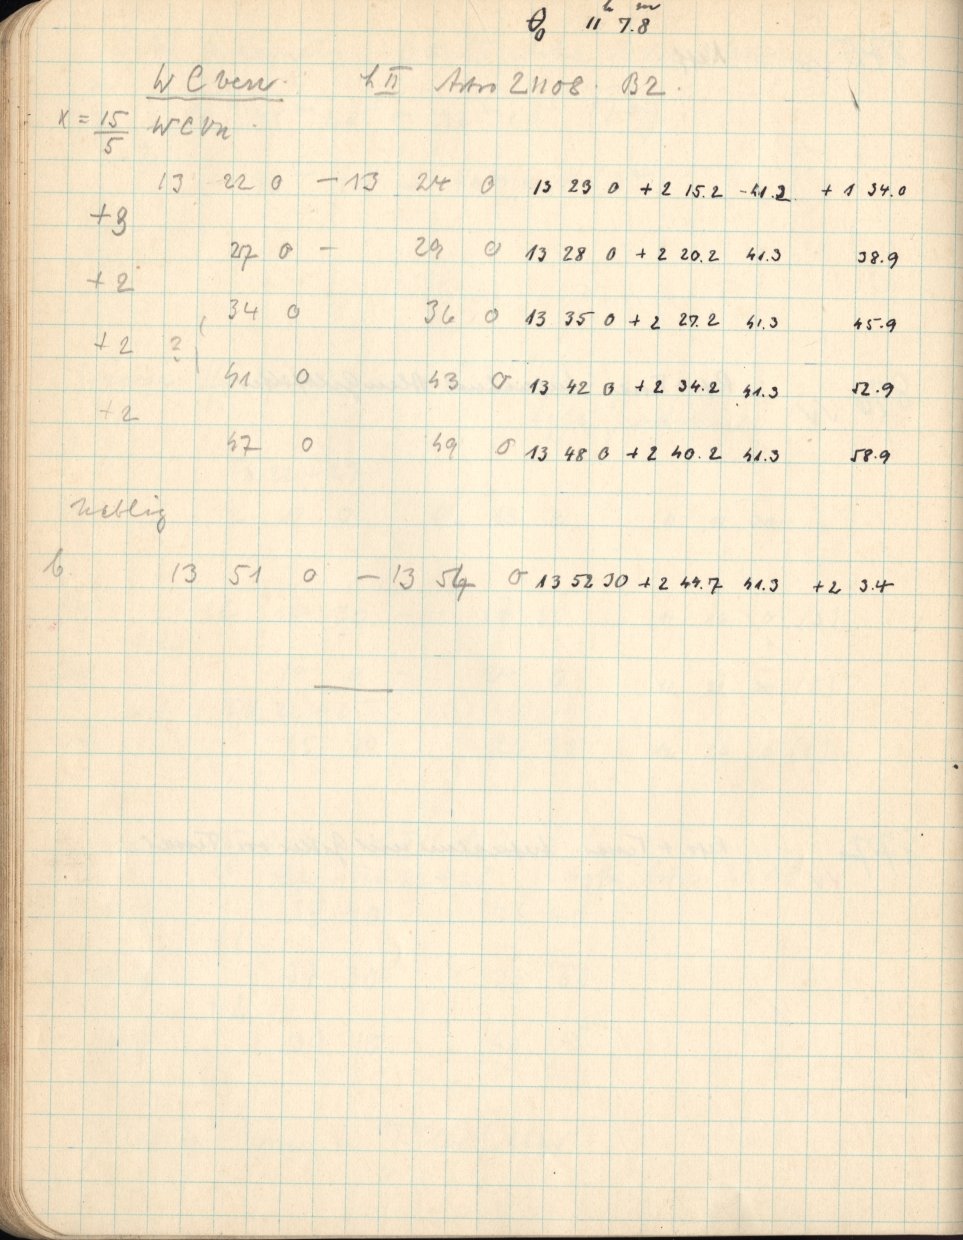 θ₀ 11ʰ 7.8ᵐ
W C ven. h II Astro 21108. B2.
x = 15/5 W C Vn.
13 22 0 – 13 24 0 13 23 0 +2 15.2 -41.3 +1 34.0
+3
27 0 – 29 0 13 28 0 +2 20.2 41.3 38.9
+2
34 0 36 0 13 35 0 +2 27.2 41.3 45.9
+2 ? (
41 0 43 0 13 42 0 +2 34.2 41.3 52.9
+2
47 0 49 0 13 48 0 +2 40.2 41.3 58.9
neblig
b 13 51 0 – 13 54 0 13 52 30 +2 44.7 41.3 +2 3.4